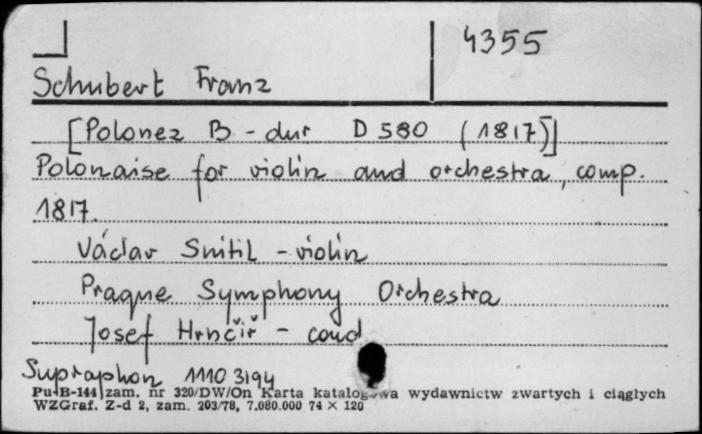 4355
Schubert Franz
[Polonez B-dur D 580 (1817)]
Polonaise for violin and orchestra, comp.
1817.
Václav Snitil - violin
Prague Symphony Orchestra
Josef Hrnčíř - cond
Supraphon 1110 3194
Pu-B-144 zam. nr 320/DW/On Karta katalogowa wydawnictw zwartych i ciągłych
WZGraf. Z-d 2, zam. 203/78, 7.080.000 74 × 120